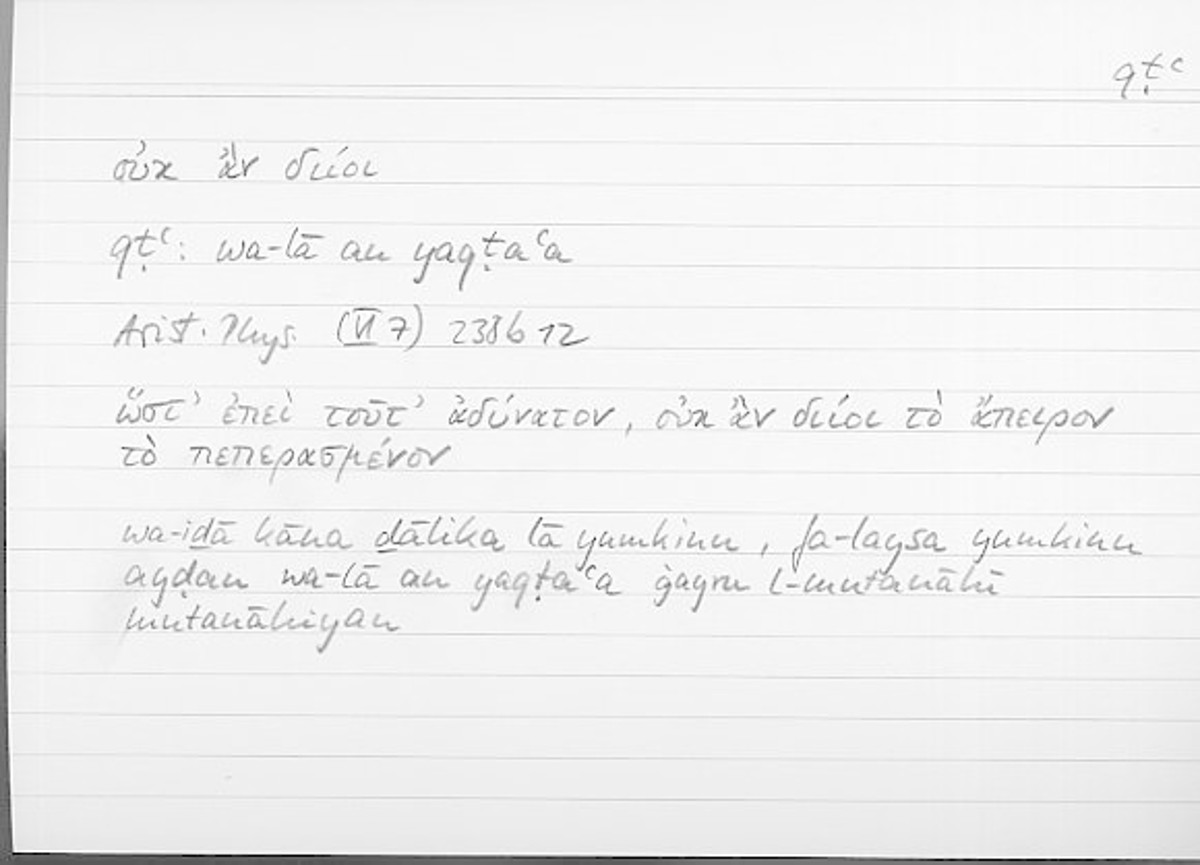 qṭʿ
οὐκ ἂν διίοι
qṭʿ: wa-lā an yaqṭaʿa
Arist. Phys. (VI 7) 238b 12
ὥστ’ ἐπεὶ τοῦτ’ ἀδύνατον, οὐκ ἂν διίοι τὸ ἄπειρον
τὸ πεπερασμένον
wa-iḏā kāna ḏālika lā yumkinu, fa-laysa yumkinu
ayḍan wa-lā an yaqṭaʿa ġayru l-mutanāhī
mutanāhiyan